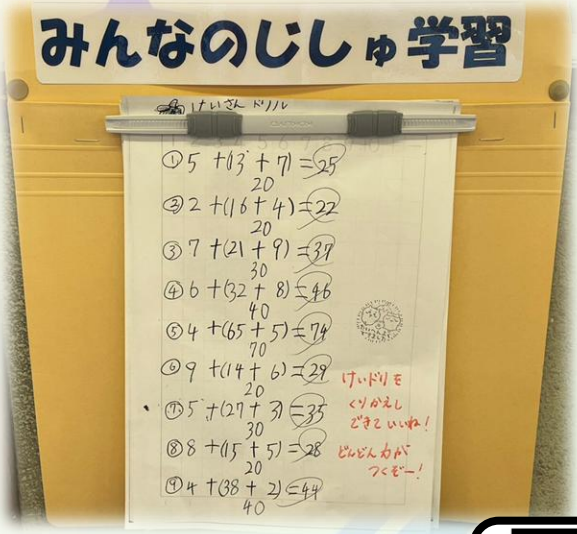 みんなのじしゅ学習
けいさんドリル
① 5 + (13 + 7) = 25
20
② 2 + (16 + 4) = 22
20
③ 7 + (21 + 9) = 37
30
④ 6 + (32 + 8) = 46
40
⑤ 4 + (65 + 5) = 74
70
⑥ 9 + (14 + 6) = 29
20
⑦ 5 + (27 + 3) = 35
30
⑧ 8 + (15 + 5) = 28
20
⑨ 4 + (38 + 2) = 44
40
けいドリを
くりかえし
できていいね!
どんどん力が
つくぞー!